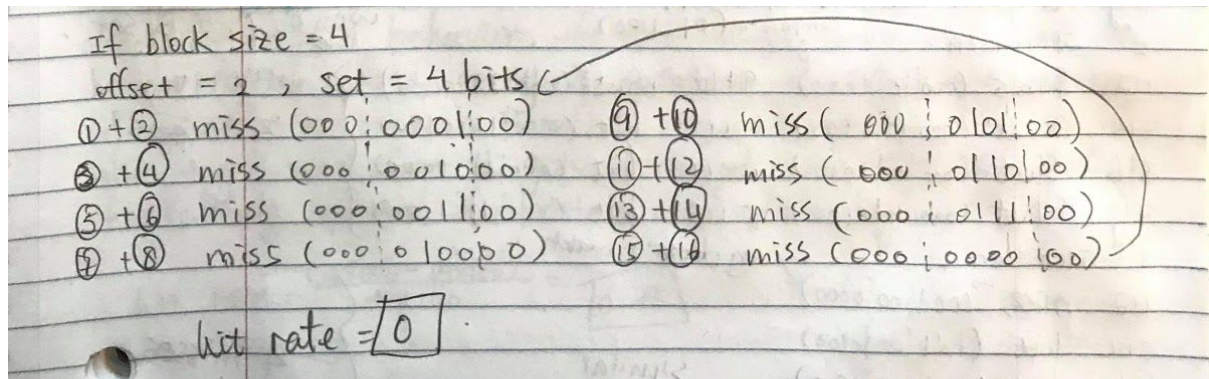 If block size = 4
offset = 2 , set = 4 bits
① + ② miss (000 ¦ 0001 ¦ 00) ⑨ + ⑩ miss ( 000 ¦ 0101 ¦ 00)
③ + ④ miss (000 ¦ 0010 ¦ 00) ⑪ + ⑫ miss ( 000 ¦ 0110 ¦ 00)
⑤ + ⑥ miss (000 ¦ 0011 ¦ 00) ⑬ + ⑭ miss (000 ¦ 0111 ¦ 00)
⑦ + ⑧ miss (000 ¦ 0100 ¦ 00) ⑮ + ⑯ miss (000 ¦ 0000 ¦ 00)
hit rate = 0